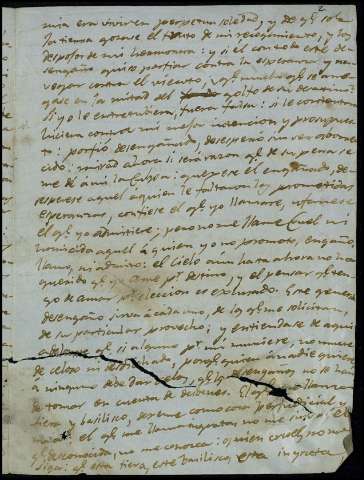 mia era vivir en perpetua soledad, y de q̃ sola
la tierra gozase el fruto de mi recogimiento, y los
despojos de mi hermosura: y si el con todo este de
sengaño quiso porfiar contra la esperanza y na
vegar contra el viento, q̃ mucho q̃ se ane
gase en la mitad del golfo de su desatino?
si yo le entretuviera, fuera falsa: si le contentara
hiciera contra mi mejor intencion y prosupues
to: porfió desengañado, desesperó sin ser aborre
cido: mirad ahora si será razon q̃ de su pena se
me dé a mi la culpa: quejese el engañado, de
sesperese aquel a quien le faltaron las prometidas
esperanzas, confiese el q̃ yo llamare, ufanese
el q̃ yo admitiere; pero no me llame cruel ni
homicida aquel á quien yo no prometo, engaño,
llamo, ni admito: el cielo aun hasta ahora no ha
querido q̃ yo ame por destino, y el pensar q̃ ten
go de amar por eleccion es excusado. Este general
desengaño sirva á cada uno, de los q̃ me solicitan,
de su particular provecho; y entiendase de aqui
adelante q̃ si alguno por mi muriere, no muere
de celoso ni desdichado, porq̃ quien á nadie quiere
á ninguno debe dar celos, q̃ los desengaños no se han
de tomar en cuenta de desdenes. El q̃ me llama
fiera y basilisco, dexeme como cosa perjudicial y
mala: el q̃ me llama ingrata, no me sirva: el
q̃ desconocida, no me conozca: quien cruel, no me
siga: q̃ esta fiera, este basilisco, esta ingrata,